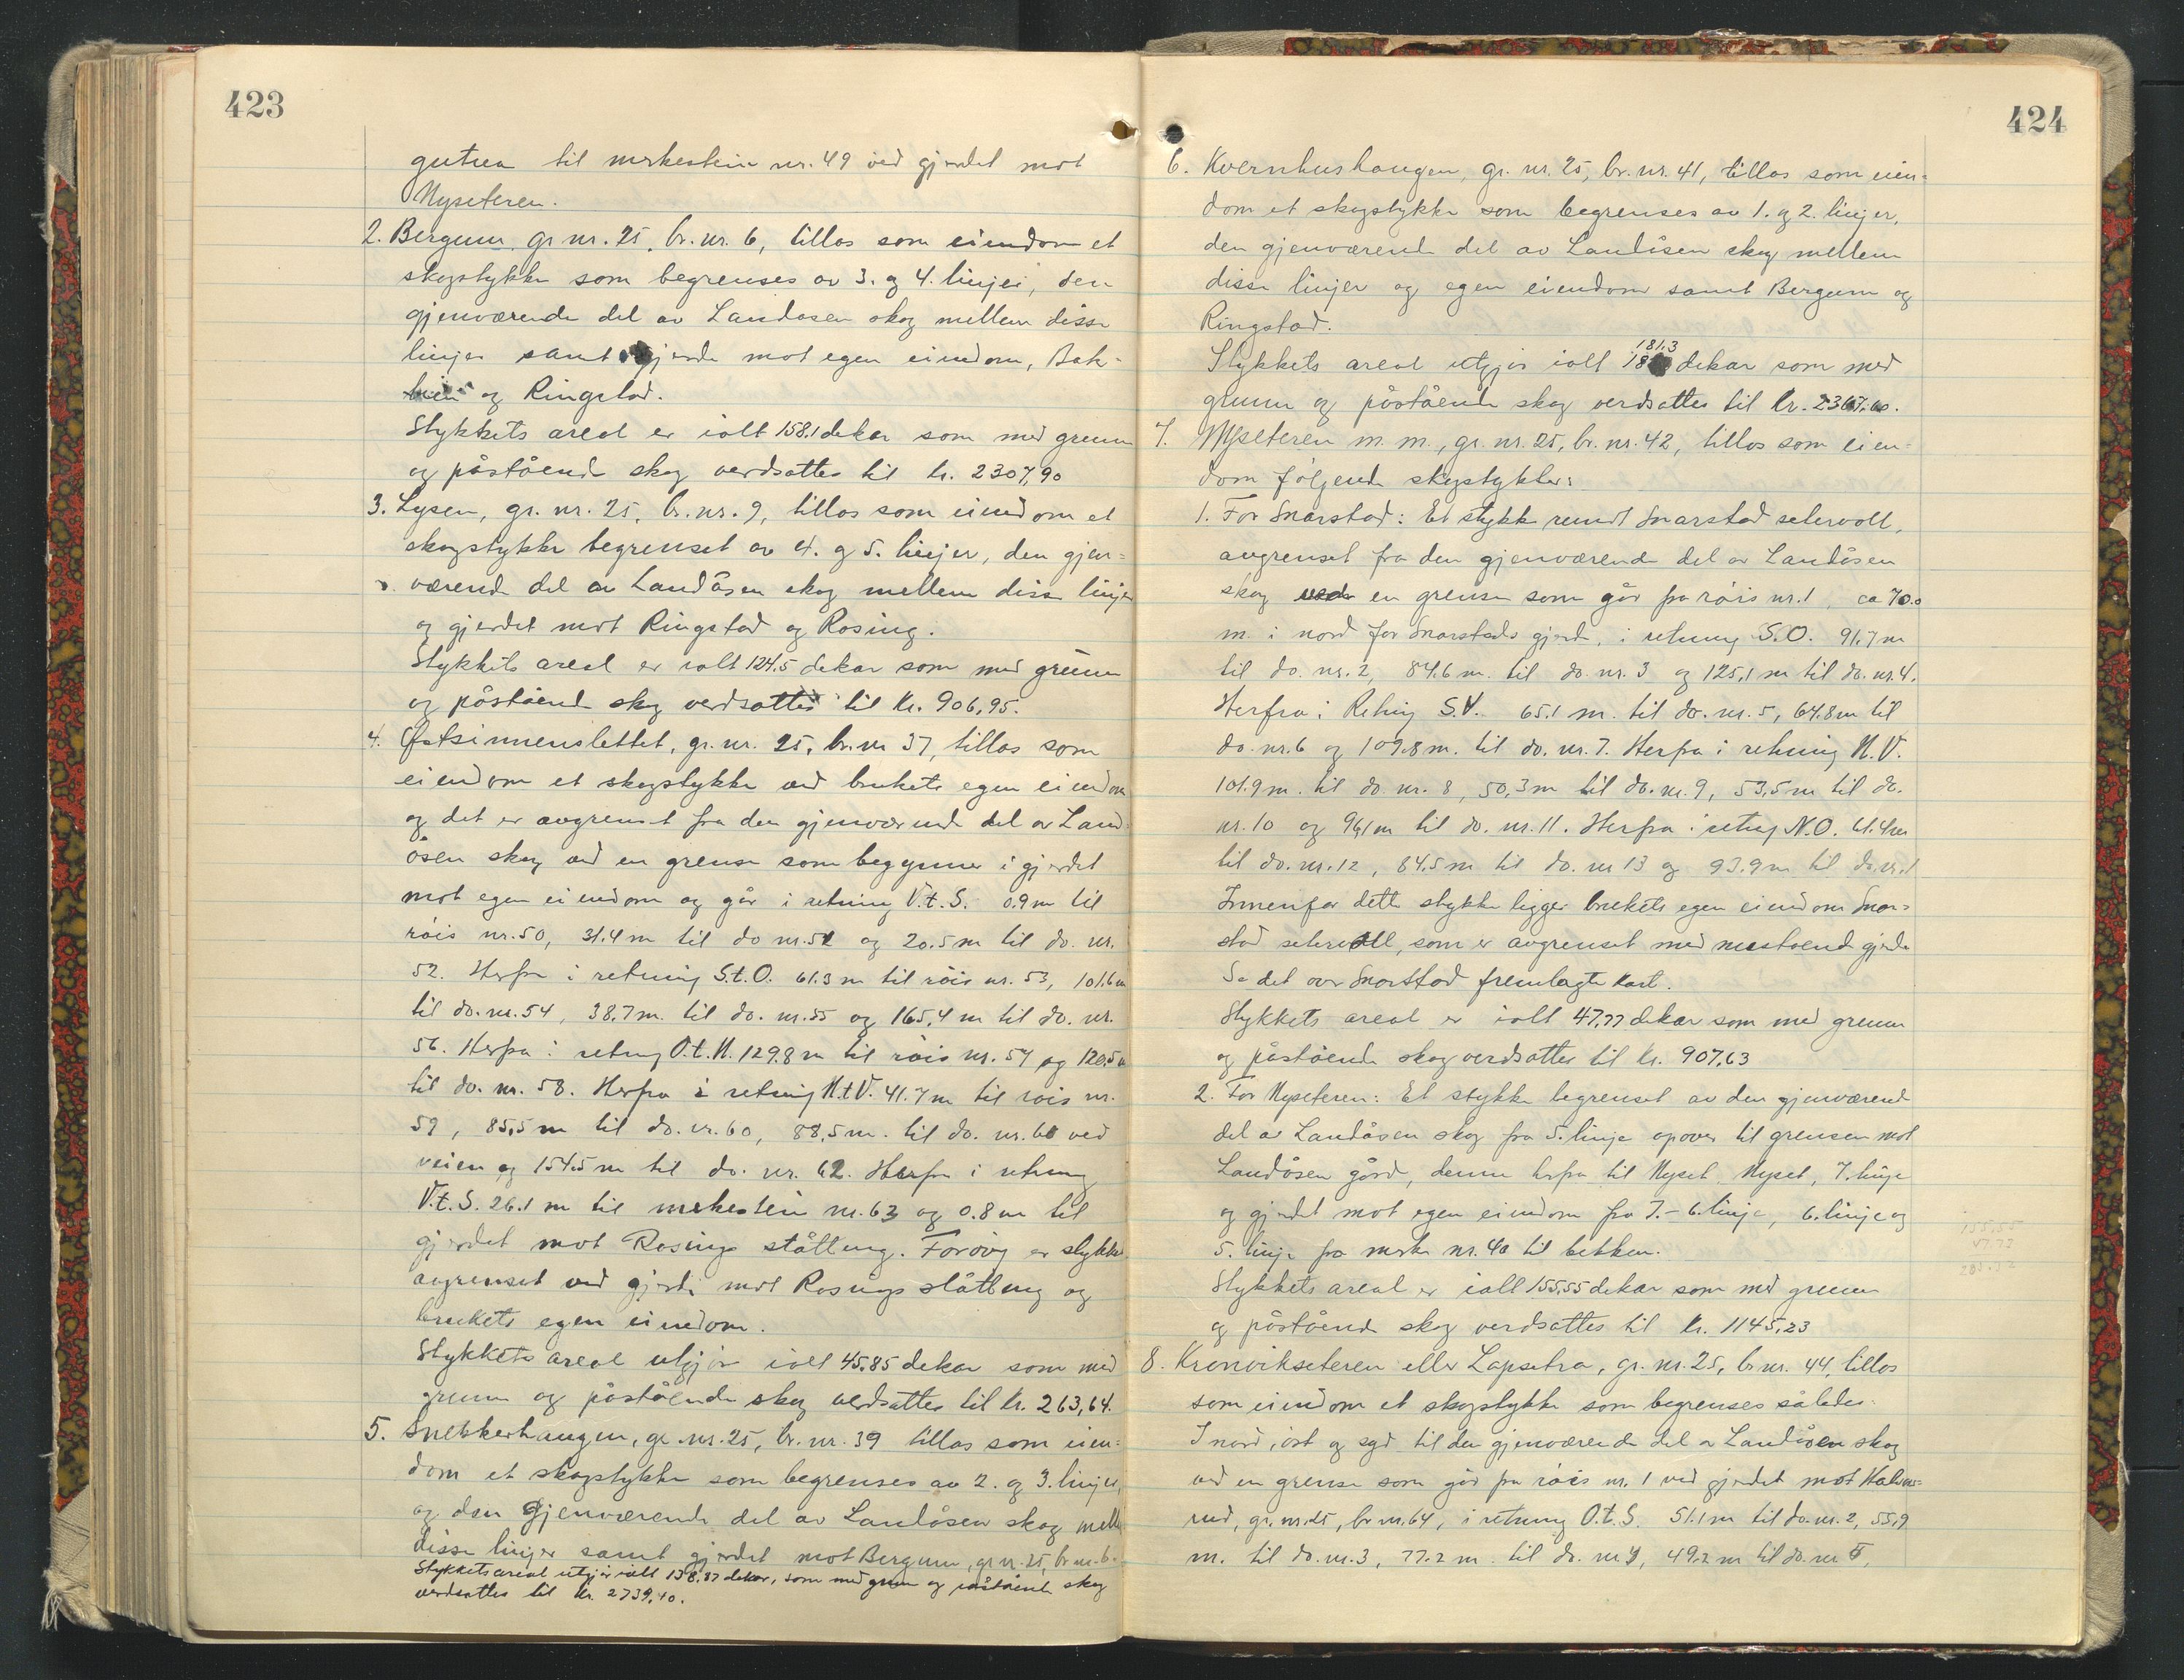 423
gutua til merkestein nr. 49 ved gjerdet mot
Nyseteren.
2. Bergum gr. nr. 25, br. nr. 6, tillas som eiendom et
skogstykke som begrenses av 3. og 4. linjer, den
gjenværende del av Landåsen skog mellem disse
linjer samt gjerde mot egen eiendom, Bak-
og Ringstad.
Stykkets areal er ialt 158.1 dekar som med grunn
og påstående skog verdsattes til kr. 2307,90
3. Lysen, gr. nr. 25, br. nr. 9, tillas som eiendom et
skogstykke begrenset av 4. og 5. linjer, den gjen-
værende del av Landåsen skog mellem disse linjer
og gjerdet mot Ringstad og Rosing.
Stykkets areal er ialt 124.5 dekar som med grunn
og påstående skog verdsattes til kr. 906,95.
4. Østsinnenslettet, gr. nr. 25, br. nr 37, tillas som
eiendom et skogstykke ved brukets egen eiendom
og det er avgrenset fra den gjenværende del av Land-
åsen skog ved en grense som begynner i gjerdet
mot egen eiendom og går i retning V.t.S. 0.9 m til
röis nr. 50, 31.4 m til do nr. 51 og 20.5 m til do. nr.
52. Herfra i retning S.t.O. 61.3 m til röis nr. 53, 101.6 m
til do. nr. 54, 38.7 m. til do. nr. 55 og 165,4 m til do. nr.
56. Herfra i retning O.t.N. 129.8 m til röis nr. 57 og 120.5 m
til do. nr. 58. Herfra i retning N.t.V. 41.7 m til röis nr.
59, 85,5 m til do. nr. 60, 88,5 m. til do. nr. 61 ved
veien og 154.5 m til do. nr. 62. Herfra i retning
V.t.S. 26.1 m til merkestein nr. 63 og 0.8 m til
gjerdet mot Rosings slåtteng. Forövrig er stykket
avgrenset ved gjerde mot Rosings slåtteng og
brukets egen eiendom.
Stykkets areal utgjör ialt 45.85 dekar som med
grunn og påstående skog verdsattes til kr. 263,64.
5. Snekkerhaugen, gr. nr. 25, br. nr. 39 tillas som eien-
dom et skogstykke som begrenses av 2. og 3. linjer,
og den gjenværende del av Landåsen skog mellem
disse linjer samt gjerdet mot Bergum, gr. nr. 25, br. nr. 6.
Stykkets areal utgjör ialt 138.87 dekar, som med grunn og påstående skog
verdsattes til kr. 2739,40.
424
6. Kvernhushaugen, gr. nr. 25, br. nr. 41, tillas som eien-
dom et skogstykke som begrenses av 1. og 2. linjer,
den gjenværende del av Landåsen skog mellem
disse linjer og egen eiendom samt Bergum og
Ringstad.
181.3
Stykkets areal utgjör ialt dekar som med
grunn og påstående skog verdsattes til kr. 2367.60.
7. Nyseteren m. m., gr. nr. 25, br. nr. 42, tillas som eien-
dom følgende skogstykker:
1. For Snarstad: Et stykke rundt Snarstad setervoll,
avgrenset fra den gjenværende del av Landåsen
skog ved en grense som går fra röis nr. 1 ca 70.0
m. i nord for Snarstads gjerde, i retning S.O. 91.7 m
til do. nr. 2, 84.6 m. til do nr. 3 og 125,1 m til do. nr. 4.
Herfra i Retning S.V. 65.1 m. til do. nr. 5, 64.8 m til
do. nr. 6 og 109.8 m. til do. nr. 7. Herfra i retning N.V.
101.9 m. til do nr. 8, 50,3 m til do. nr. 9, 53,5 m til do.
nr. 10 og 96,1 m til do. nr. 11. Herfra i retning N.O. 61.4 m
til do. nr. 12, 84.5 m til do. nr 13 og 93.9 m til do. nr. 1
Innenfor dette stykke ligger brukets egen eiendom Snar-
stad setervoll, som er avgrenset med nustående gjerde
Se det over Snarstad fremlagte kart.
Stykkets areal er ialt 47,77 dekar som med grunn
og påstående skog verdsattes til kr. 907,63
2. For Nyseteren: Et stykke begrenset av den gjenværende
del av Landåsen skog fra 5. linje opover til grensen mot
Landåsen gård, denne herfra til Nyset, Nyset, 7. linje
og gjerdet mot egen eiendom fra 7.- 6. linje, 6. linje og
5. linje fra merke nr. 40 til bekken.
Stykkets areal er ialt 155,55 dekar som med grunn
og påstående skog verdsattes til kr. 1145,23
8. Kronvikseteren eller Lapsetra, gr. nr. 25, br. nr. 44, tillas
som eiendom et skogstykke som begrenses således:
I nord, öst og syd til den gjenværende del av Landåsen skog
ved en grense som går fra röis nr. 1 ved gjerdet mot
rud, gr. nr. 25, br. nr. 64, i retning O.t.S. 51.1 m til do. nr. 2, 55,9
m. til do. nr. 3, 77.2 m. til do. nr 4, 49.2 m til do. nr 5,